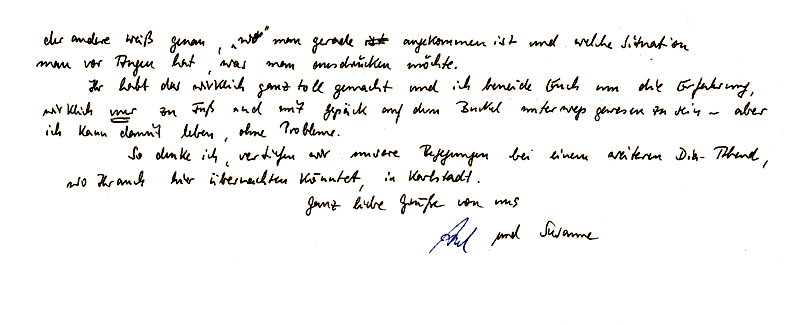 der andere weiß genau, „wo“ man gerade ist angekommen ist und welche Situation
man vor Augen hat, was man ausdrücken möchte.
Ihr habt das wirklich ganz toll gemacht und ich beneide Euch um die Erfahrung,
wirklich nur zu Fuß und mit Gepäck auf dem Buckel unterwegs gewesen zu sein – aber
ich kann damit leben, ohne Probleme.
So denke ich, vertiefen wir unsere bei einem weiteren Dia-Abend,
wo Ihr auch hier übernachten könntet, in Karlstadt.
Ganz liebe Grüße von uns
und Susanne